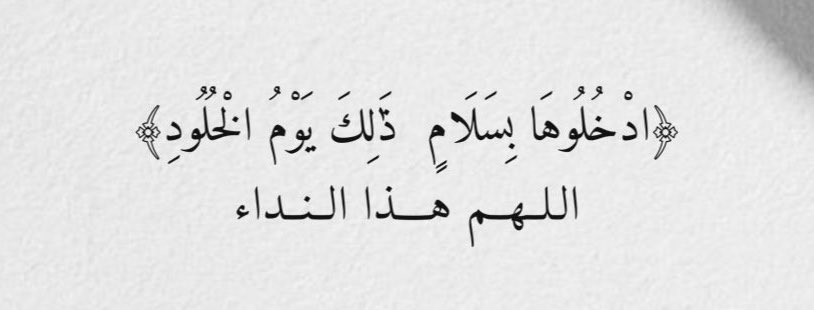 ﴿ادْخُلُوهَا بِسَلَامٍ ذَٰلِكَ يَوْمُ الْخُلُودِ﴾
اللـهـم هـــذا الـنـداء